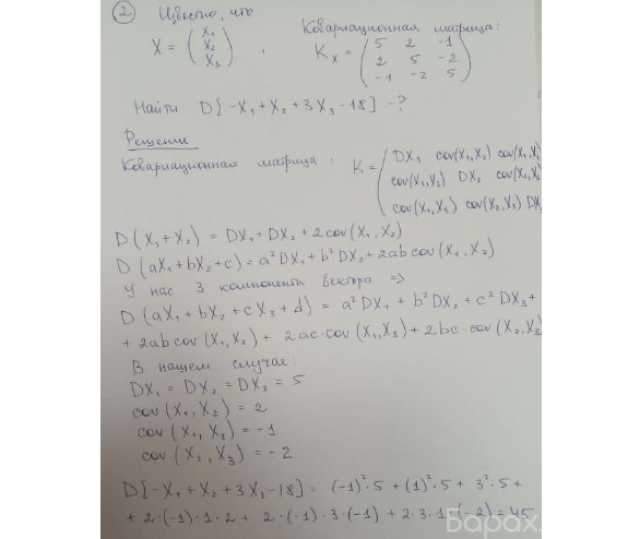 2 Известно, что
X = ( X₁ X₂ X₃ ) , Ковариационная матрица:
Kₓ = ( 5 2 -1
2 5 -2
-1 -2 5 )
Найти D[-X₁ + X₂ + 3X₃ - 18] - ?
Решение
Ковариационная матрица: K = ( DX₁ cov(X₁,X₂) cov(X₁,X₃
cov(X₁,X₂) DX₂ cov(X₁,X₃)
cov(X₁,X₃) cov(X₂,X₃) DX₃
D(X₁+X₂) = DX₁ + DX₂ + 2cov(X₁,X₂)
D(aX₁+bX₂+c) = a²DX₁ + b²DX₂ + 2ab cov(X₁,X₂)
У нас 3 компоненты вектора =>
D(aX₁ + bX₂ + cX₃ + d) = a²DX₁ + b²DX₂ + c²DX₃ +
+ 2ab cov(X₁,X₂) + 2ac·cov(X₁,X₃) + 2bc·cov(X₂,X₃
В нашем случае:
DX₁ = DX₂ = DX₃ = 5
cov(X₁,X₂) = 2
cov(X₁,X₃) = -1
cov(X₂,X₃) = -2
D[-X₁ + X₂ + 3X₃ - 18] = (-1)²·5 + (1)²·5 + 3²·5 +
+ 2·(-1)·1·2 + 2·(-1)·3·(-1) + 2·3·1·(-2) = 45
Барах